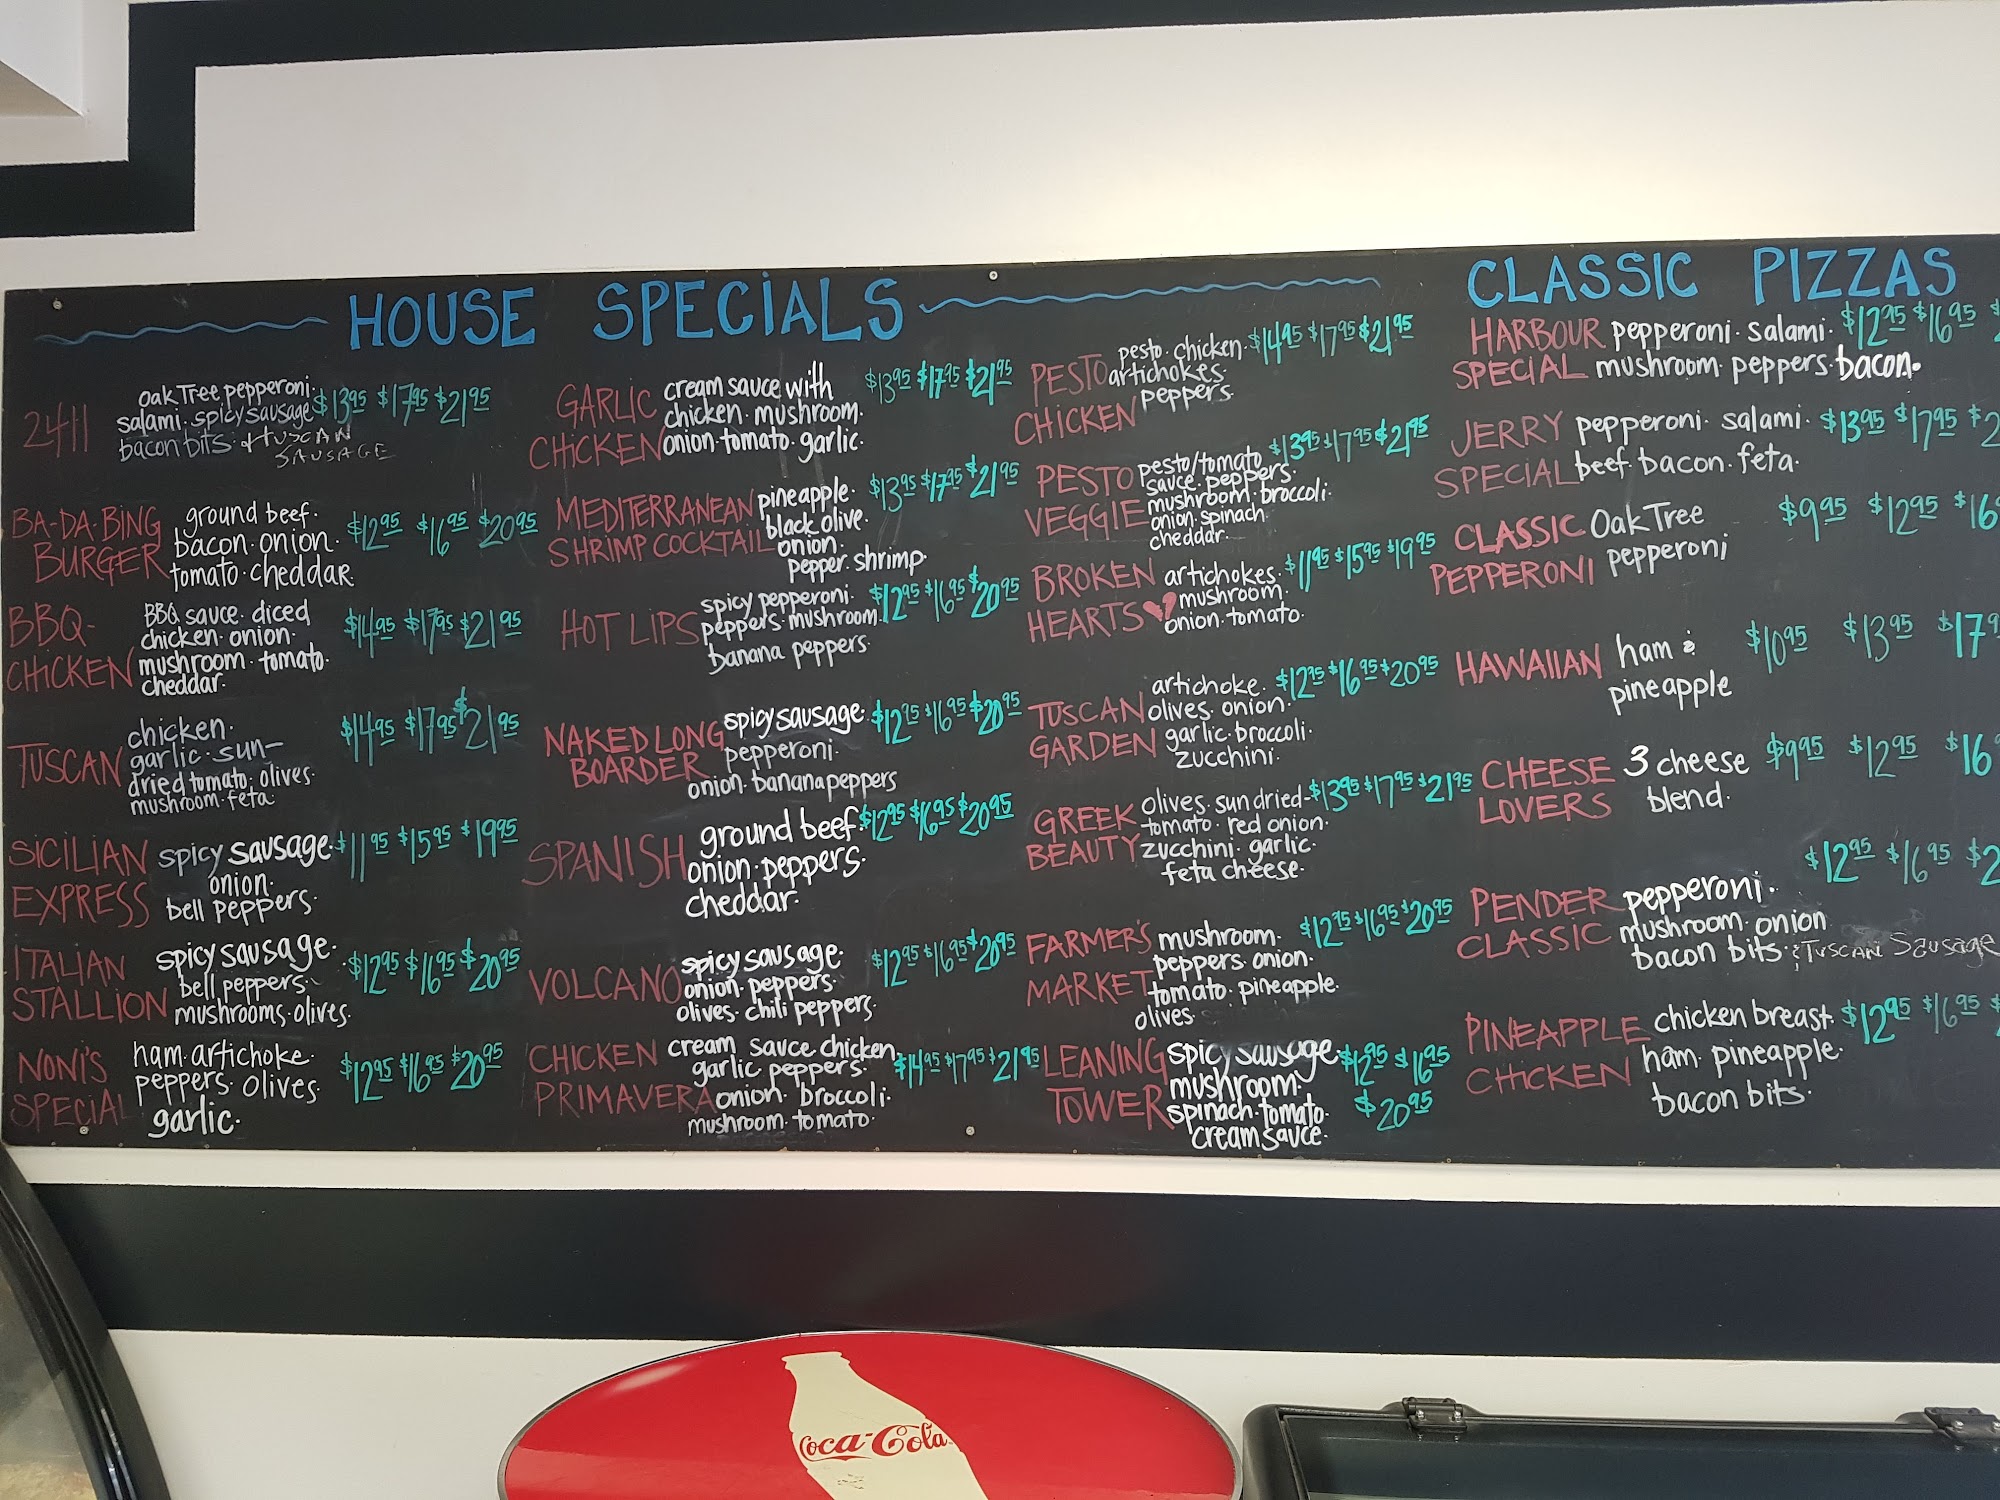 HOUSE SPECIALS
2411
oak Tree pepperoni. $13.95 $17.95 $21.95
salami. spicy sausage
bacon bits & TUSCAN
SAUSAGE
BA-DA-BING BURGER
ground beef.
bacon. onion. $12.95 $16.95 $20.95
tomato. cheddar.
BBQ- CHICKEN
BBQ sauce. diced
chicken. onion. $14.95 $17.95 $21.95
mushroom. tomato.
cheddar.
TUSCAN
chicken. $14.95 $17.95 $21.95
garlic. sun-
dried tomato. olives.
mushroom. feta
SICILIAN EXPRESS
spicy sausage. $11.95 $15.95 $19.95
onion.
bell peppers.
ITALIAN STALLION
spicy sausage. $12.95 $16.95 $20.95
bell peppers.
mushrooms. olives.
NONI'S SPECIAL
ham. artichoke. $12.95 $16.95 $20.95
peppers. olives.
garlic.
GARLIC CHICKEN
cream sauce with $13.95 $17.95 $21.95
chicken. mushroom.
onion. tomato. garlic.
MEDITERRANEAN SHRIMP COCKTAIL
pineapple. $13.95 $17.95 $21.95
black olive.
onion.
pepper. shrimp.
HOT LIPS
spicy pepperoni. $12.95 $16.95 $20.95
peppers. mushroom.
banana peppers.
NAKED LONG BOARDER
spicy sausage. $12.95 $16.95 $20.95
pepperoni.
onion. banana peppers
SPANISH
ground beef. $12.95 $16.95 $20.95
onion. peppers.
cheddar.
VOLCANO
spicy sausage. $12.95 $16.95 $20.95
onion. peppers.
olives. chili peppers.
CHICKEN PRIMAVERA
cream sauce chicken. $14.95 $17.95 $21.95
garlic peppers.
onion. broccoli.
mushroom. tomato.
PESTO CHICKEN
pesto. chicken. $14.95 $17.95 $21.95
artichokes.
peppers.
PESTO VEGGIE
pesto/tomato $13.95 $17.95 $21.95
sauce. peppers.
mushroom. broccoli.
onion. spinach.
cheddar.
BROKEN HEARTS
artichokes. $11.95 $15.95 $19.95
mushroom.
onion. tomato.
TUSCAN GARDEN
artichoke. $12.95 $16.95 $20.95
olives. onion.
garlic. broccoli.
zucchini.
GREEK BEAUTY
olives. sun dried- $13.95 $17.95 $21.95
tomato. red onion.
zucchini. garlic.
feta cheese.
FARMER'S MARKET
mushroom. $12.95 $16.95 $20.95
peppers. onion.
tomato. pineapple.
olives
LEANING TOWER
spicy sausage $12.95 $16.95
mushroom. $20.95
spinach. tomato.
cream sauce.
CLASSIC PIZZAS
HARBOUR SPECIAL
pepperoni. salami. $12.95 $16.95
mushroom. peppers. bacon.
JERRY SPECIAL
pepperoni. salami. $13.95 $17.95 $2
beef. bacon. feta.
CLASSIC PEPPERONI
Oak Tree $9.95 $12.95 $16
pepperoni
HAWAIIAN
ham & $10.95 $13.95 $17.9
pineapple
CHEESE LOVERS
3 cheese $9.95 $12.95 $16
blend.
PENDER CLASSIC
pepperoni. $12.95 $16.95 $2
mushroom. onion
bacon bits. & TUSCAN SAUSAGE
PINEAPPLE CHICKEN
chicken breast. $12.95 $16.95 $
ham. pineapple.
bacon bits.
Coca-Cola